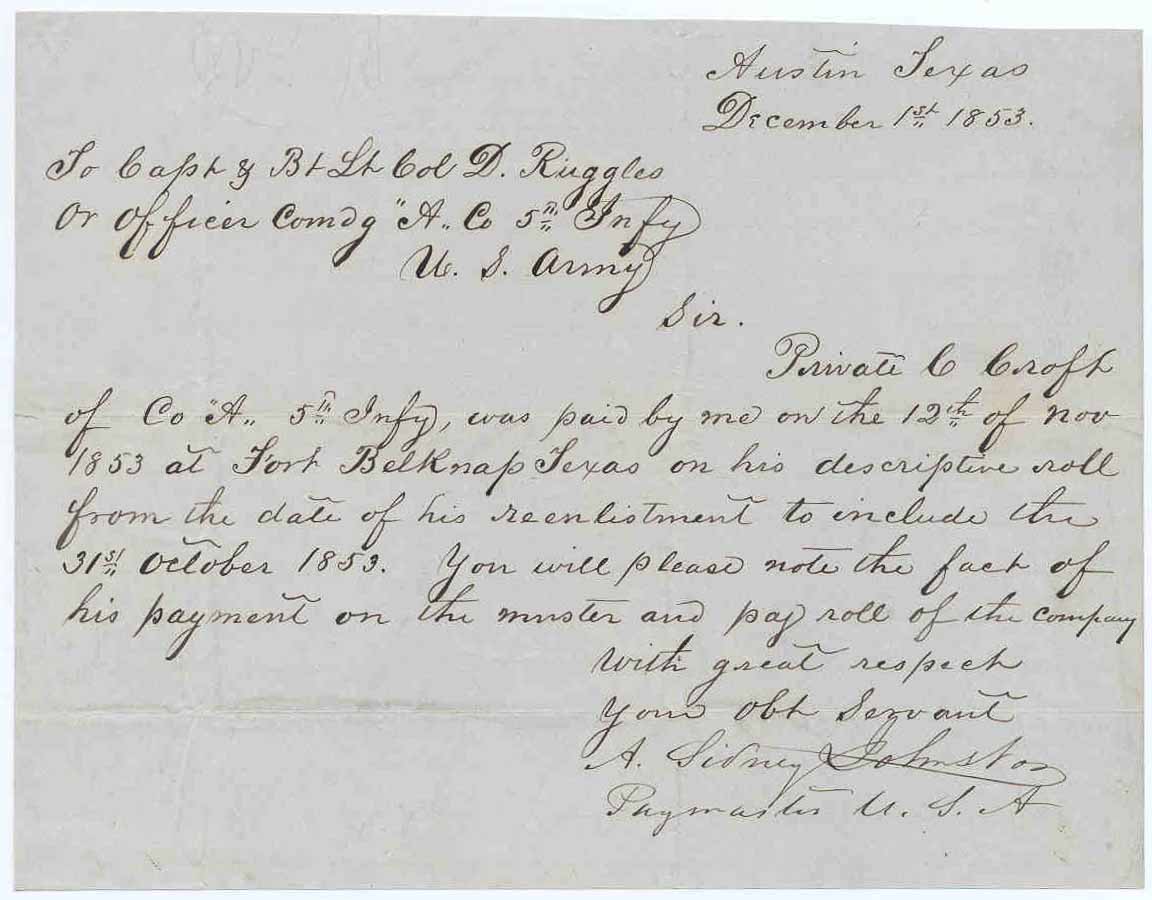 Austin Texas
December 1st 1853.
To Capt & Bt Lt Col D. Ruggles
Or Officer Comdg "A" Co 5th Infy
U. S. Army
Sir.
Private C Croft
of Co "A" 5th Infy, was paid by me on the 12th of Nov
1853 at Fort Belknap Texas on his descriptive roll
from the date of his reenlistment to include the
31st October 1853. You will please note the fact of
his payment on the muster and pay roll of the company
With great respect
Your Obt Servant
A. Sidney Johnston
Paymaster U. S. A